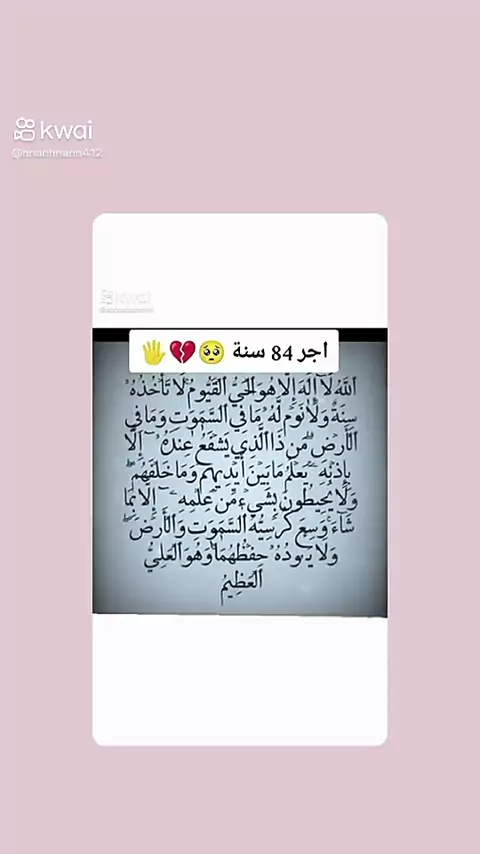 kwai
@nnanhnann412
kwai
اجر 84 سنة 🥺💔🖐
اللَّهُ لَآ إِلَٰهَ إِلَّا هُوَ الْحَيُّ الْقَيُّومُ ۚ لَا تَأْخُذُهُۥ
سِنَةٌ وَلَا نَوْمٌ لَّهُۥ مَا فِي السَّمَٰوَٰتِ وَمَا فِي
الْأَرْضِ ۗ مَن ذَا الَّذِي يَشْفَعُ عِندَهُۥٓ إِلَّا
بِإِذْنِهِۦ ۚ يَعْلَمُ مَا بَيْنَ أَيْدِيهِمْ وَمَا خَلْفَهُمْ ۖ
وَلَا يُحِيطُونَ بِشَيْءٍ مِّنْ عِلْمِهِۦٓ إِلَّا بِمَا
شَآءَ ۚ وَسِعَ كُرْسِيُّهُ السَّمَٰوَٰتِ وَالْأَرْضَ ۖ
وَلَا يَـُٔودُهُۥ حِفْظُهُمَا ۚ وَهُوَ الْعَلِيُّ
الْعَظِيمُ